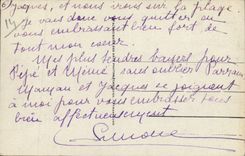 Jacques, et nous irons sur la plage.
Je vais donc vous quitter en
vous embrassant bien fort de
tout mon cœur.
Mes plus tendres baisers pour
Pépé et Mémé sans oublier Parrain
Maman et Jacques se joignent
à moi pour vous embrasser tous
bien affectueusement
Simone